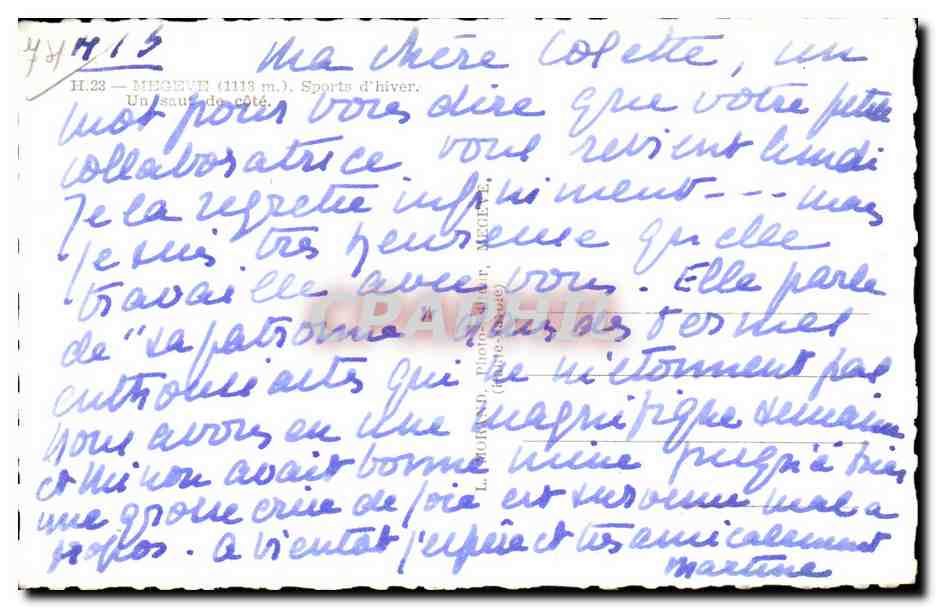 7115
Ma chère Colette, un
H.23 — MEGEVE (1113 m.). Sports d'hiver.
Un saut de côté.
mot pour vous dire que votre petite
collaboratrice vous revient lundi
Je la regrette infiniment --- mais
je suis très heureuse qu'elle
travaille avec vous. Elle parle
de "sa patronne" dans des termes
enthousiastes qui ne m'étonnent pas
Nous avons eu une magnifique semaine
et Ninon avait bonne mine jusqu'à hier
une grosse crise de foie est survenue mal à
propos. A bientôt j'espère et très amicalement
Martine
L. MORAND, Photo-Éditeur, MEGEVE.
(Haute-Savoie)
CPARAMA